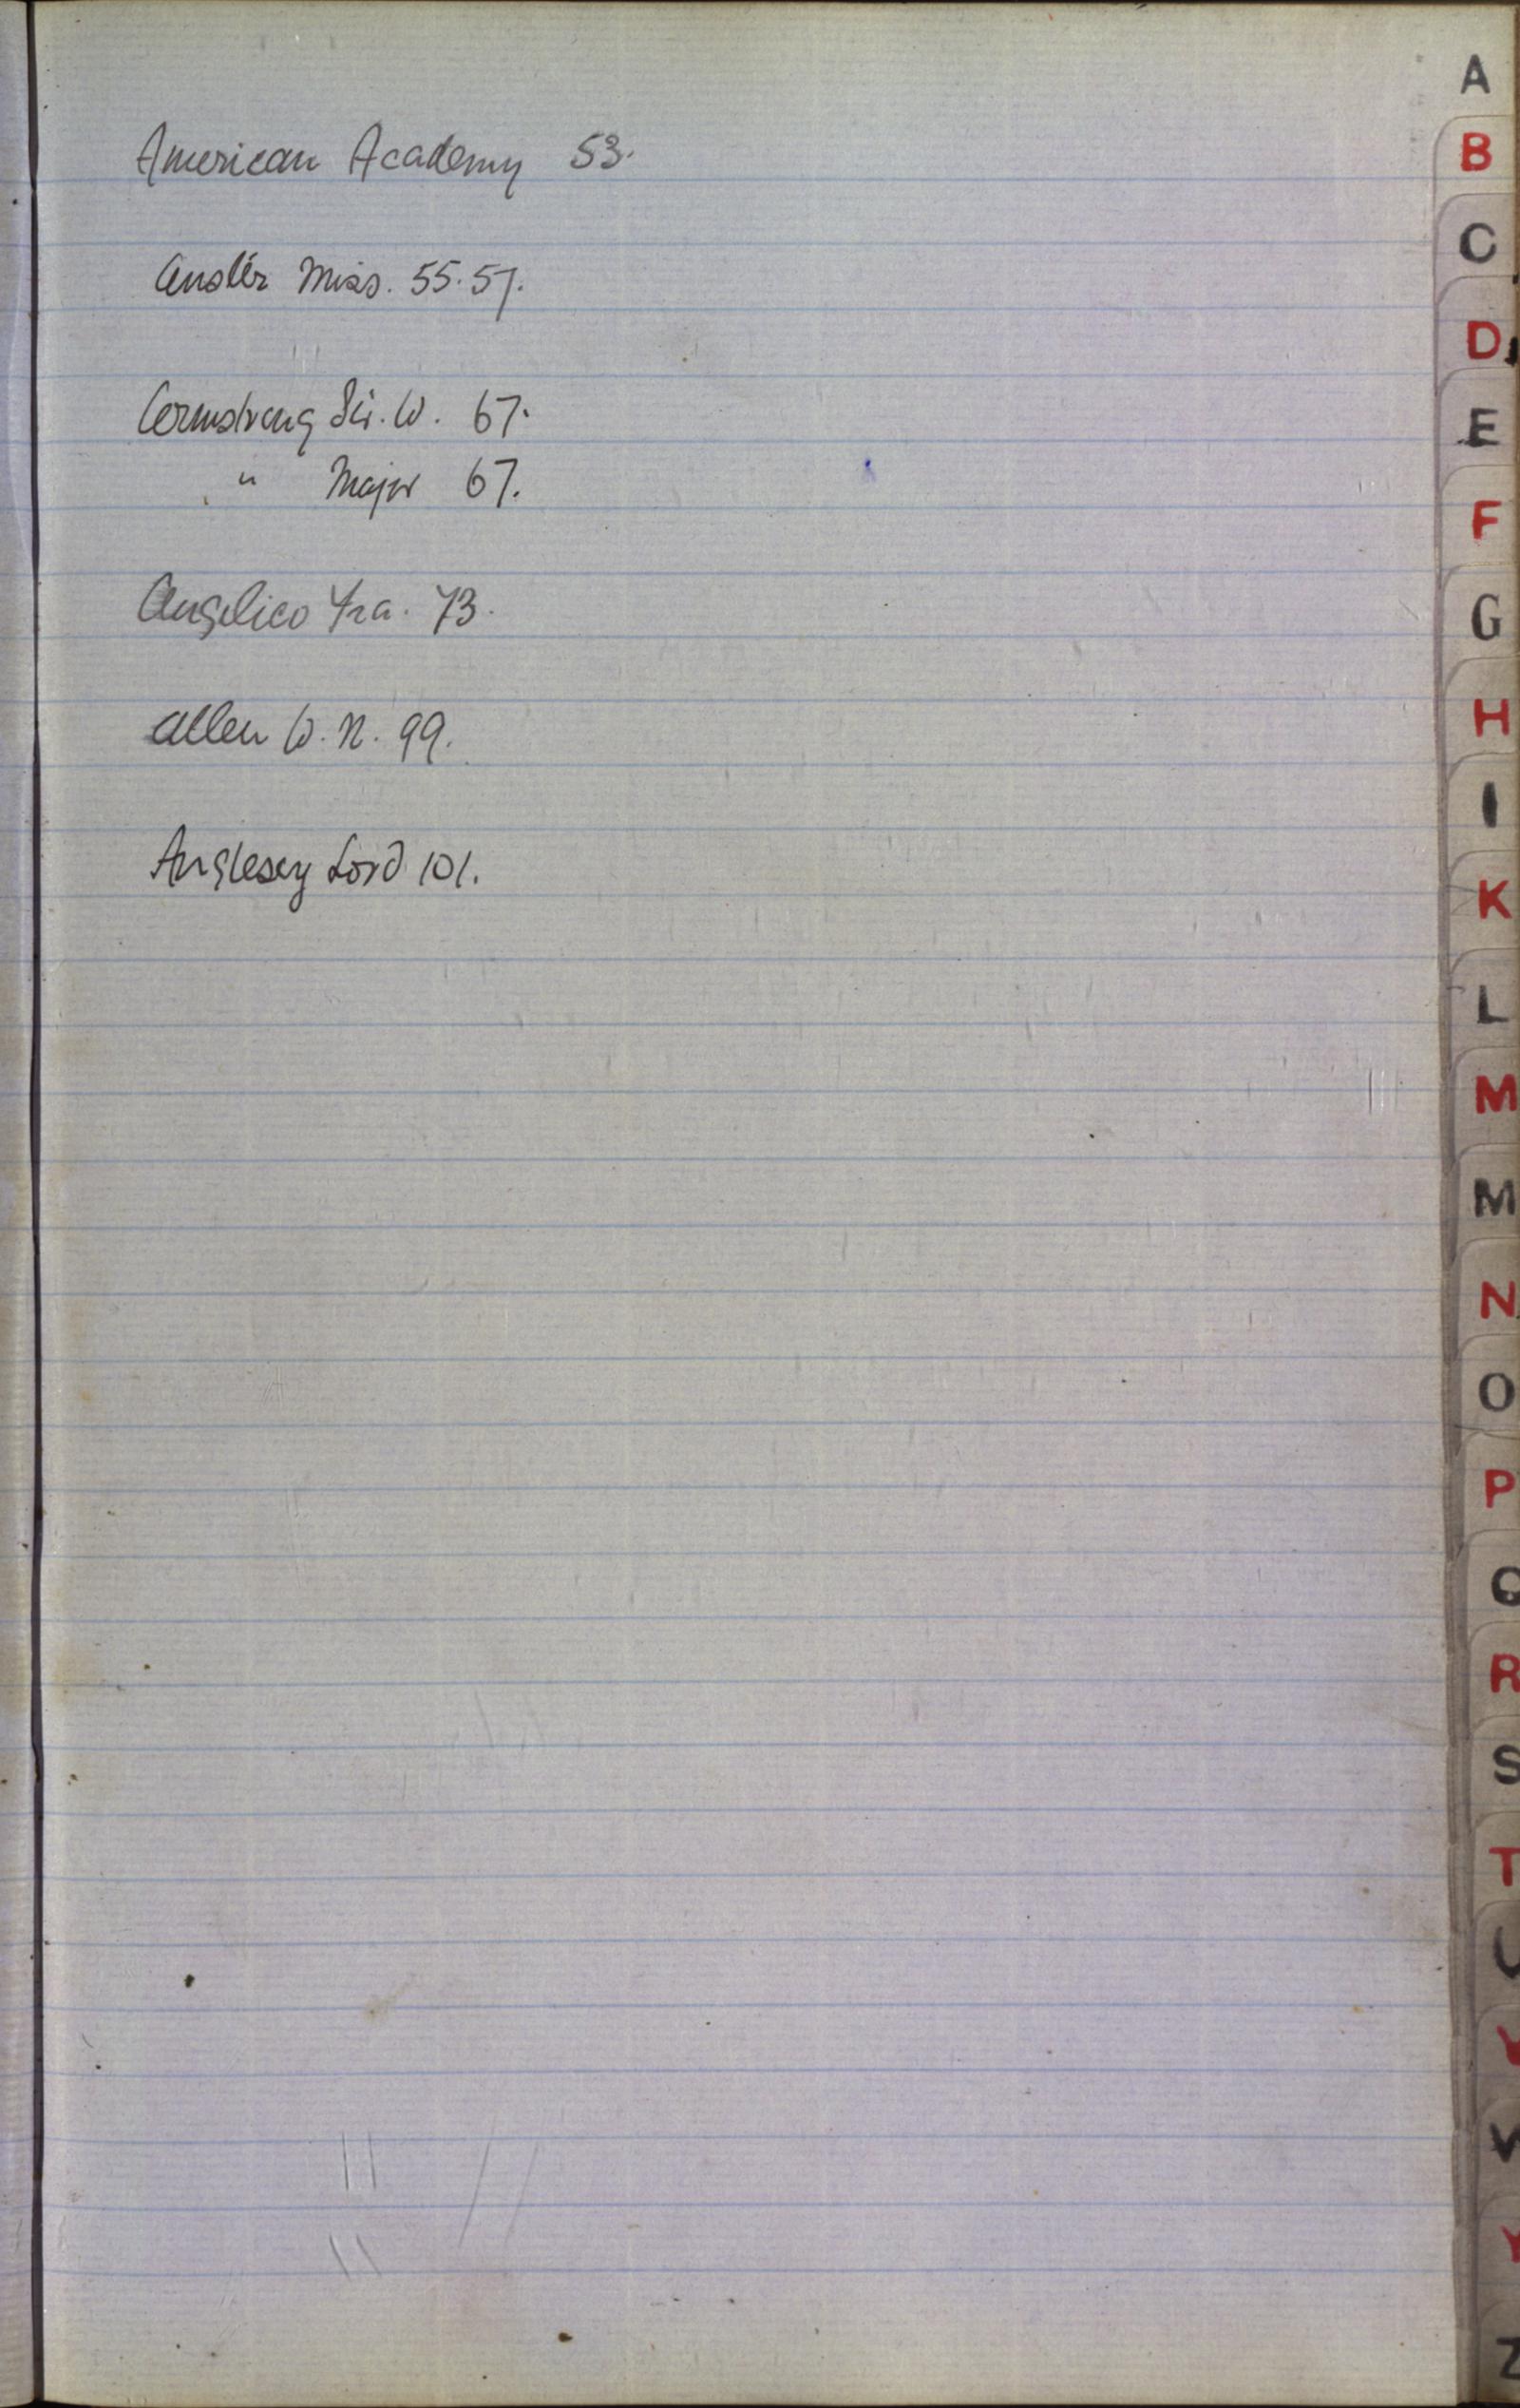 American Academy 53.
Anstér Miss. 55.57.
Armstrong Sir. W. 67.
" Major 67.
Angelico Fra. 73.
Allen W. N. 99.
Anglesey Lord 101.
A
B
C
D
E
F
G
H
I
K
L
M
M
N
O
P
Q
R
S
T
U
V
W
Y
Z